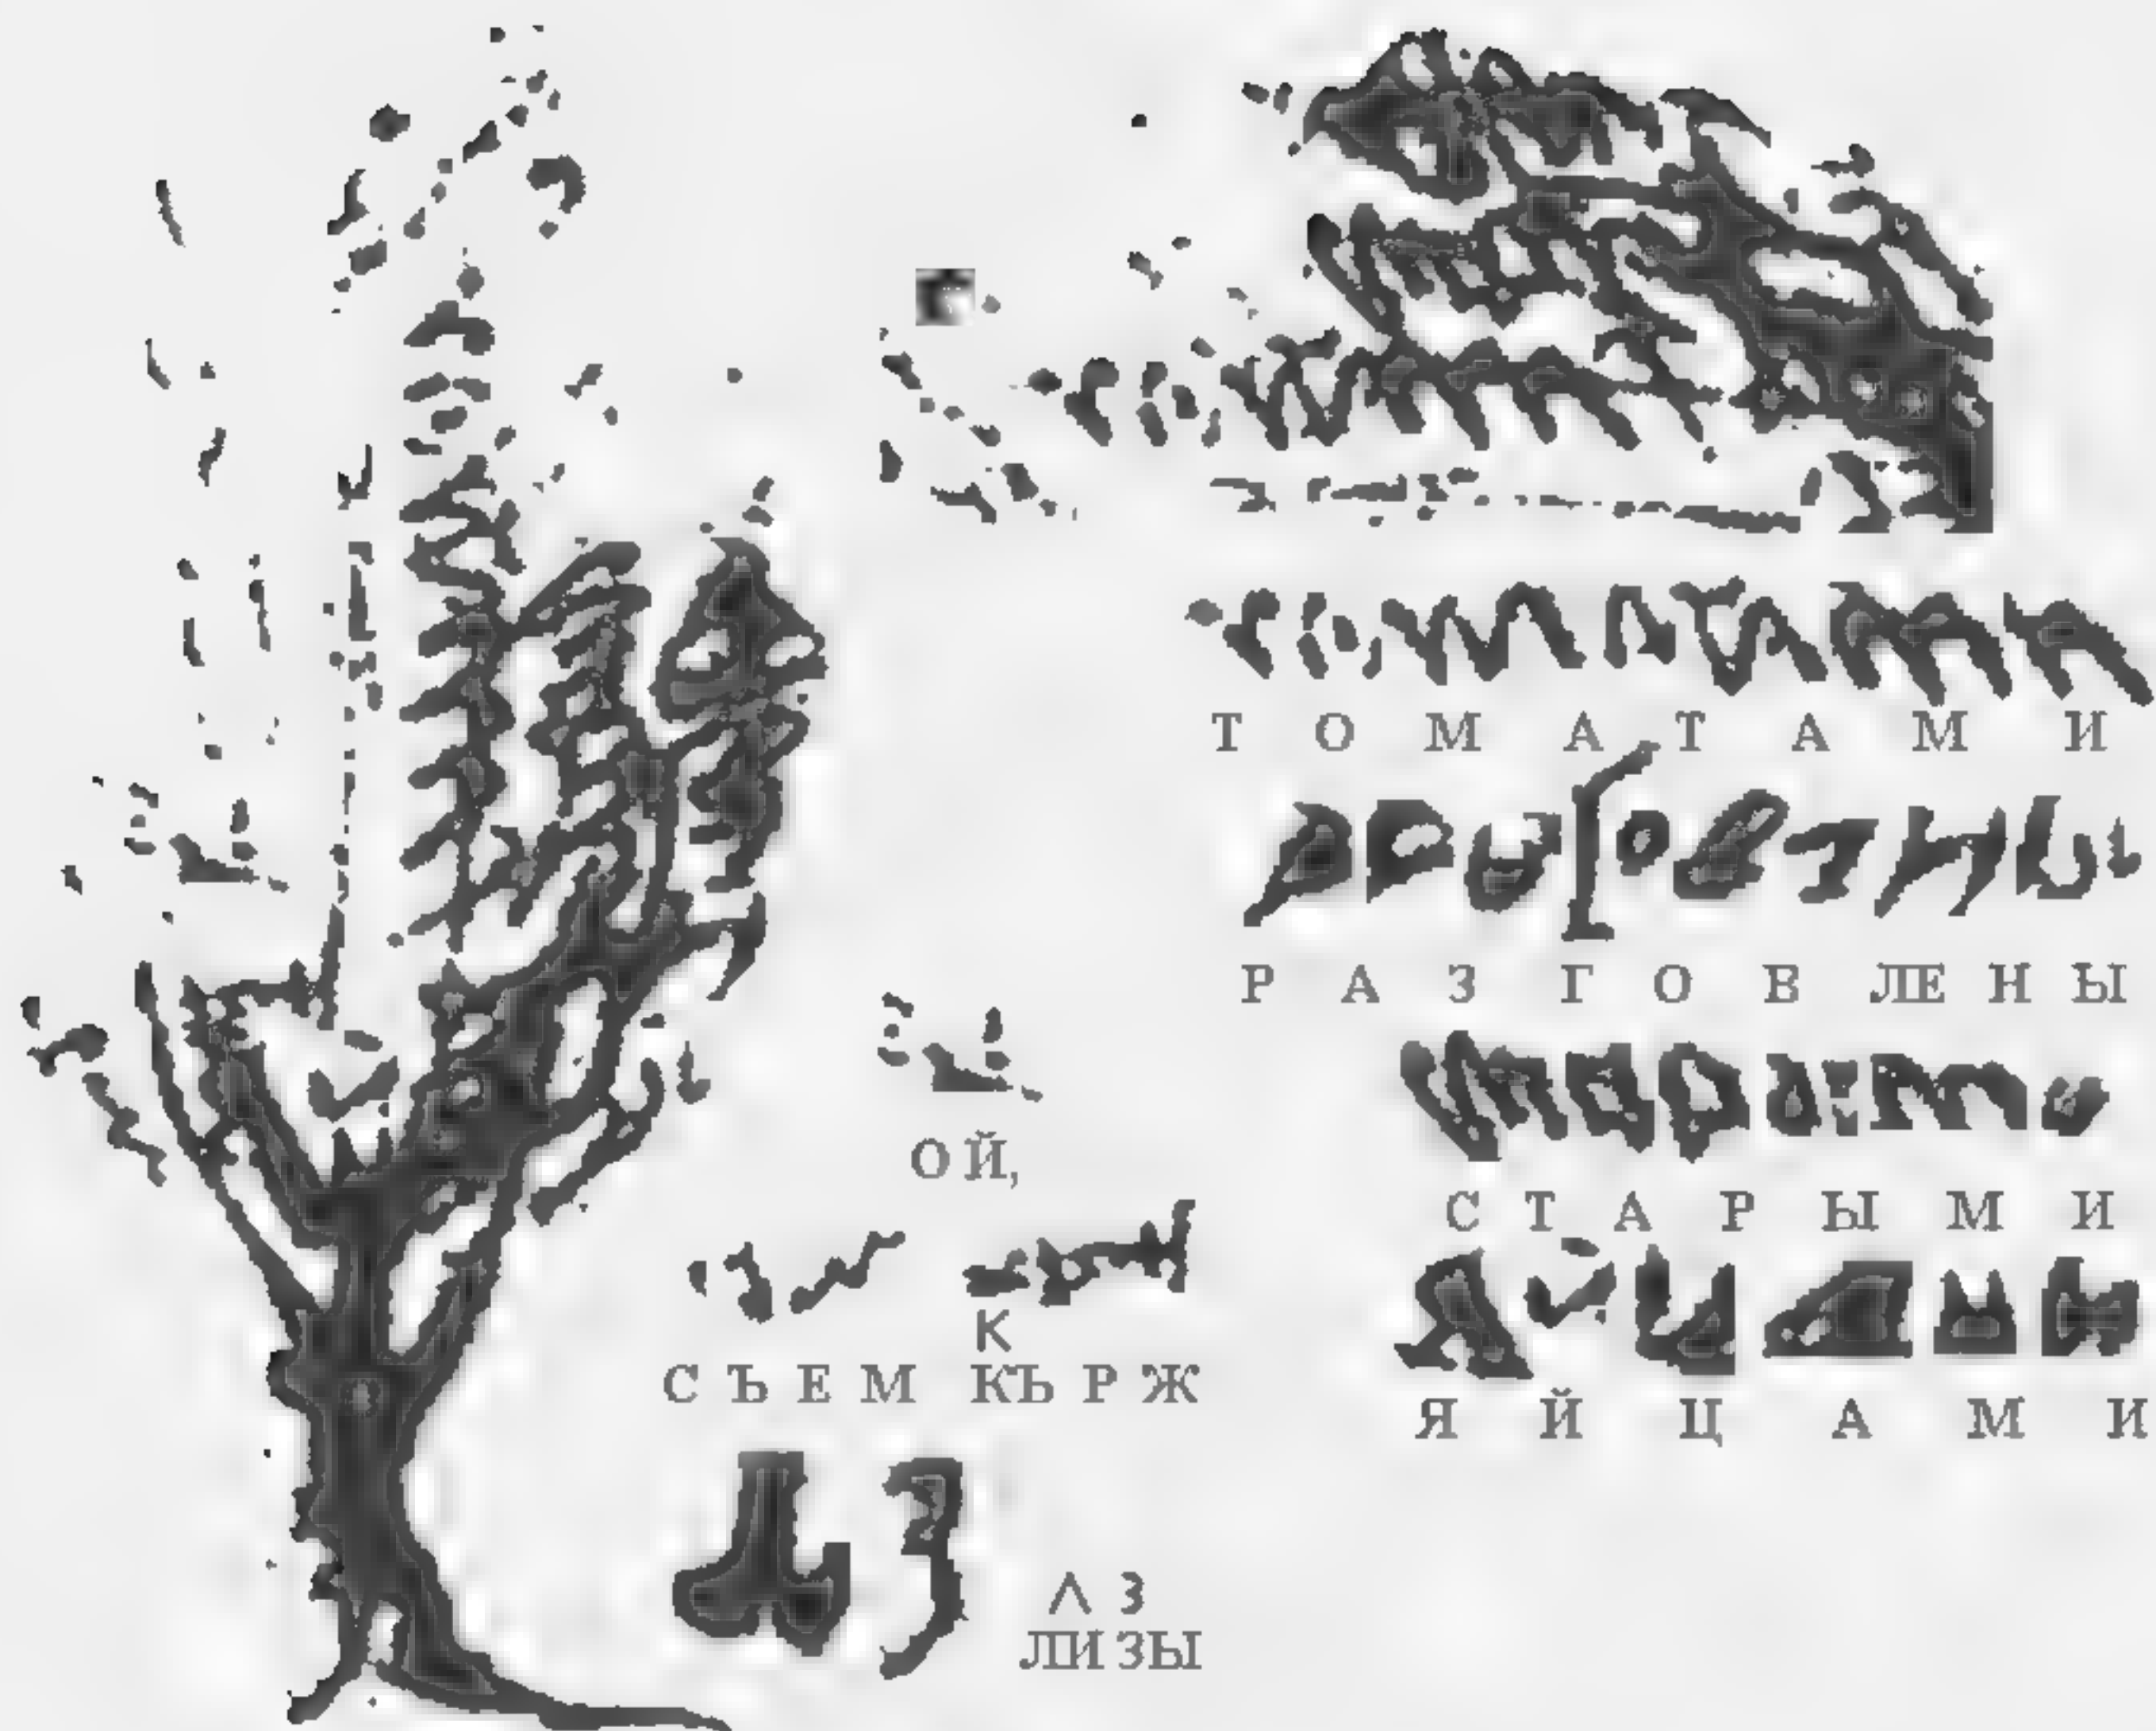 ТОМАТАМИ
РАЗГОВЛЕНЫ
СТАРЫМИ
ЯЙЦАМИ
ОЙ,
К
СЪЕМ КЪРЖ
Л З
ЛИЗЫ